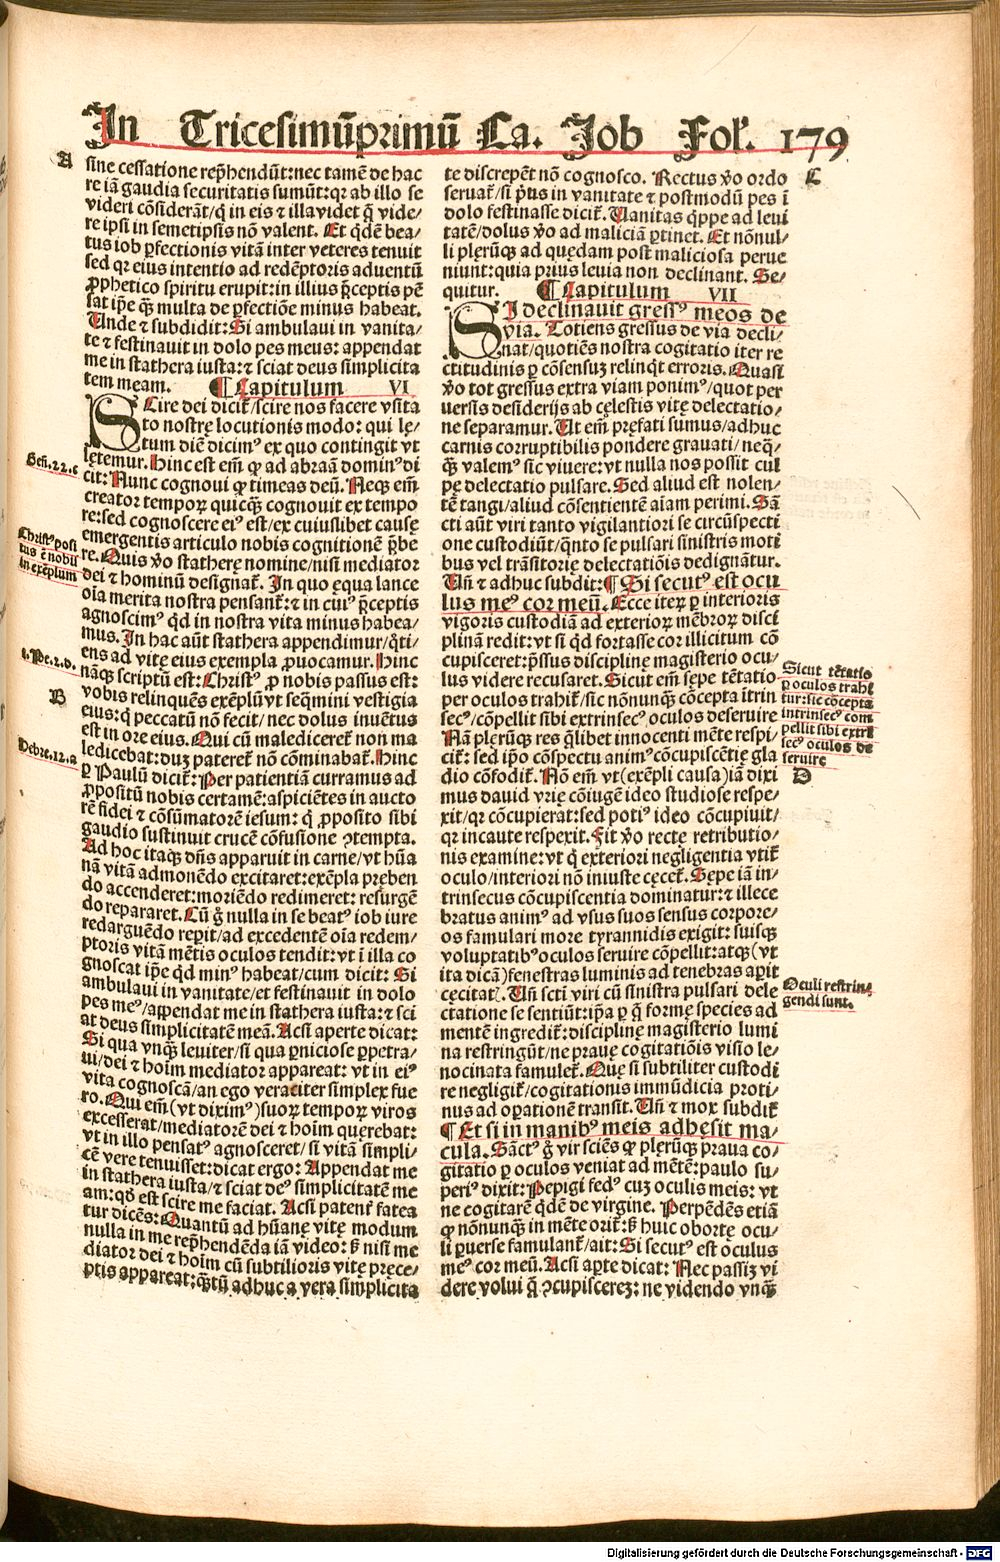 In Tricesimũprimũ Ca. Job Fol'. 179
A
sine cessatione rep̃hendũt: nec tamẽ de hac
re iã gaudia securitatis sumũt: qr ab illo se
videri cõsiderãt/ q̇ in eis ⁊ illa videt q̃ vide/
re ipsi in semetipsis nõ valent. Et q̇dẽ bea/
tus iob ꝑfectionis vitã inter veteres tenuit
sed qꝛ eius intentio ad redẽptoris aduentũ
ꝓphetico spiritu erupit: in illius p̃ceptis pẽ
sat ip̃e q̃ꝫ multa de ꝑfectiõe minus habeat.
Unde ⁊ subdidit: Si ambulaui in vanita/
te ⁊ festinauit in dolo pes meus: appendat
me in stathera iusta: ⁊ sciat deus simplicita
tem meam. ¶ Capitulum VI
SCire dei dicit̃/ scire nos facere vsita
to nostrę locutionis modo: qui lę/
tum diẽ dicimꝰ ex quo contingit vt
lętemur. Hinc est em̃ ꝙ ad abraã dominꝰ di
cit: Nunc cognoui ꝙ timeas deũ. Neqꝫ em̃
creator tempoꝝ quicq̃ꝫ cognouit ex tempo
re: sed cognoscere eiꝰ est/ ex cuiuslibet causę
emergentis articulo nobis cognitionẽ p̃be
re. Quis ṽo statherę nomine/ nisi mediator
dei ⁊ hominũ designat̃. In quo ęqua lance
oĩa merita nostra pensant̃: ⁊ in cuiꝰ p̃ceptis
agnoscimꝰ q̇d in nostra vita minus habea/
mus. In hac aũt stathera appendimur/ q̊ti/
ens ad vitę eius exempla ꝓuocamur. Hinc
nãqꝫ scriptũ est: Christꝰ ꝓ nobis passus est:
vobis relinquẽs exẽplũ vt seq̃mini vestigia
eius: q̇ peccatũ nõ fecit/ nec dolus inuẽtus
est in ore eius. Qui cũ malediceret̃ non ma
ledicebat: duꝫ pateret̃ nõ cõminabat̃. Hinc
ꝑ Paulũ dicit̃: Per patientiã curramus ad
ꝓpositũ nobis certamẽ: aspiciẽtes in aucto
rẽ fidei ⁊ cõsũmatorẽ iesum: q̇ ꝓposito sibi
gaudio sustinuit crucẽ cõfusione ꝯtempta.
Ad hoc itaqꝫ dñs apparuit in carne/ vt hũa
nã vitã admonẽdo excitaret: exẽpla pręben
do accenderet: moriẽdo redimeret: resurgẽ
do repararet. Cũ g̊ nulla in se beatꝰ iob iure
redarguẽdo reꝑit/ ad excedentẽ oĩa redem/
ptoris vitã mẽtis oculos tendit: vt i illa co
gnoscat ip̃e q̇d minꝰ habeat/ cum dicit: Si
ambulaui in vanitate/ et festinauit in dolo
pes meꝰ/ appendat me in stathera iusta: ⁊ sci
at deus simplicitatẽ meã. Acsi aperte dicat:
Si qua vnq̃ꝫ leuiter/ si qua ꝑniciose ꝑpetra/
ui/ dei ⁊ hoĩm mediator appareat: vt in eiꝰ
vita cognoscã/ an ego veraciter simplex fue
ro. Qui em̃ (vt diximꝰ) suoꝝ tempoꝝ viros
excesserat/ mediatorẽ dei ⁊ hoĩm querebat:
vt in illo pensatꝰ agnosceret/ si vitã simpli/
cẽ vere tenuisset: dicat ergo: Appendat me
in stathera iusta/ ⁊ sciat deꝰ simplicitatẽ me
am: qđ est scire me faciat. Acsi patent̃ fatea
tur dicẽs: Quantũ ad hũanę vitę modum
nulla in me rep̃hendẽda iã video: ß nisi me
diator dei ⁊ hoĩm cũ subtilioris vitę pręce/
ptis appareat: q̃ꝫtũ adhuc a vera simplicita
Geñ.22.c
Christꝰ posi
tus ẽ nobis
in exẽplum
1.Pe.2.d.
B
Hebre.12.a
te discrepẽt nõ cognosco. Rectus ṽo ordo
seruat̃/ si p̃us in vanitate ⁊ postmodũ pes i
dolo festinasse dicit̃. Uanitas q̇ppe ad leui
tatẽ/ dolus ṽo ad maliciã ꝑtinet. Et nõnul/
li plerũqꝫ ad quędam post maliciosa perue
niunt: quia prius leuia non declinant. Se/
quitur. ¶ Capitulum VII
SI declinauit gressꝰ meos de
via. Totiens gressus de via decli/
nat/ quotiẽs nostra cogitatio iter re
ctitudinis ꝑ cõsensuꝫ relinq̇t erroris. Quasi
ṽo tot gressus extra viam ponimꝰ/ quot per
uersis desiderijs ab cęlestis vitę delectatio/
ne separamur. Ut em̃ pręfati sumus/ adhuc
carnis corruptibilis pondere grauati/ neq̃/
q̃ꝫ valemꝰ sic viuere: vt nulla nos possit cul
pę delectatio pulsare. Sed aliud est nolen/
tẽ tangi/ aliud cõsentientẽ aĩam perimi. Sã
cti aũt viri tanto vigilantiori se circũspecti
one custodiũt/ q̊nto se pulsari sinistris moti
bus vel trãsitorię delectatiõis dedignãtur.
Uñ ⁊ adhuc subdit: ¶ Si secutꝰ est ocu
lus meꝰ cor meũ. Ecce iteꝝ ꝑ interioris
vigoris custodiã ad exterioꝝ mẽbroꝝ disci
plinã redit: vt si q̇d fortasse cor illicitum cõ
cupisceret: p̃ssus disciplinę magisterio ocu/
lus videre recusaret. Sicut em̃ sępe tẽtatio
per oculos trahit̃/ sic nõnunq̃ꝫ cõcepta itrin
secꝰ/ cõpellit sibi extrinsecꝰ oculos deseruire
Nã plerũqꝫ res q̃libet innocenti mẽte respi/
cit̃: sed ip̃o cõspectu animꝰ cõcupiscẽtię gla
dio cõfodit̃. Nõ em̃ vt (exẽpli causa) iã dixi
mus dauid vrię cõiugẽ ideo studiose respe/
xit/ qr cõcupierat: sed potiꝰ ideo cõcupiuit/
qr incaute respexit. Fit ṽo recte retributio/
nis examine: vt q̇ exteriori negligentia vtit̃
oculo/ interiori nõ iniuste cęcet̃. Sępe iã in/
trinsecus cõcupiscentia dominatur: ⁊ illece
bratus animꝰ ad vsus suos sensus corpore/
os famulari more tyrannidis exigit: suisqꝫ
voluptatibꝰ oculos seruire cõpellit: atqꝫ (vt
ita dicã) fenestras luminis ad tenebras aꝑit
cęcitatꝭ. Uñ scti viri cũ sinistra pulsari dele
ctatione se sentiũt: ip̃a ꝑ q̃ formę species ad
mentẽ ingredit̃: disciplinę magisterio lumi
na restringũt/ ne prauę cogitatiõis visio le/
nocinata famulet̃. Quę si subtiliter custodi
re negligit̃/ cogitationis immũdicia proti/
nus ad oꝑationẽ transit. Uñ ⁊ mox subdit̃
¶ Et si in manibꝰ meis adhęsit ma/
cula. Sãctꝰ g̊ vir sciẽs ꝙ plerũqꝫ praua co/
gitatio ꝑ oculos veniat ad mẽtẽ: paulo su/
periꝰ dixit: Pepigi fedꝰ cuꝫ oculis meis: vt
ne cogitarẽ q̇dẽ de virgine. Perpẽdẽs etiã
ꝙ nõnunq̃ꝫ in mẽte orit̃: ß huic obortę ocu/
li ꝑuerse famulant̃/ ait: Si secutꝰ est oculus
meꝰ cor meũ. Acsi aꝑte dicat: Nec passiꝫ vi
dere volui q̃ ꝯcupiscereꝫ: ne videndo vnq̃ꝫ
C
Sicut tẽtatio
ꝑ oculos trahi
tur: sic cõcepta
intrinsecꝰ com
pellit sibi extri
secꝰ oculos de
seruire
D
Oculi restrin/
gendi sunt.
Digitalisierung gefördert durch die Deutsche Forschungsgemeinschaft - DFG